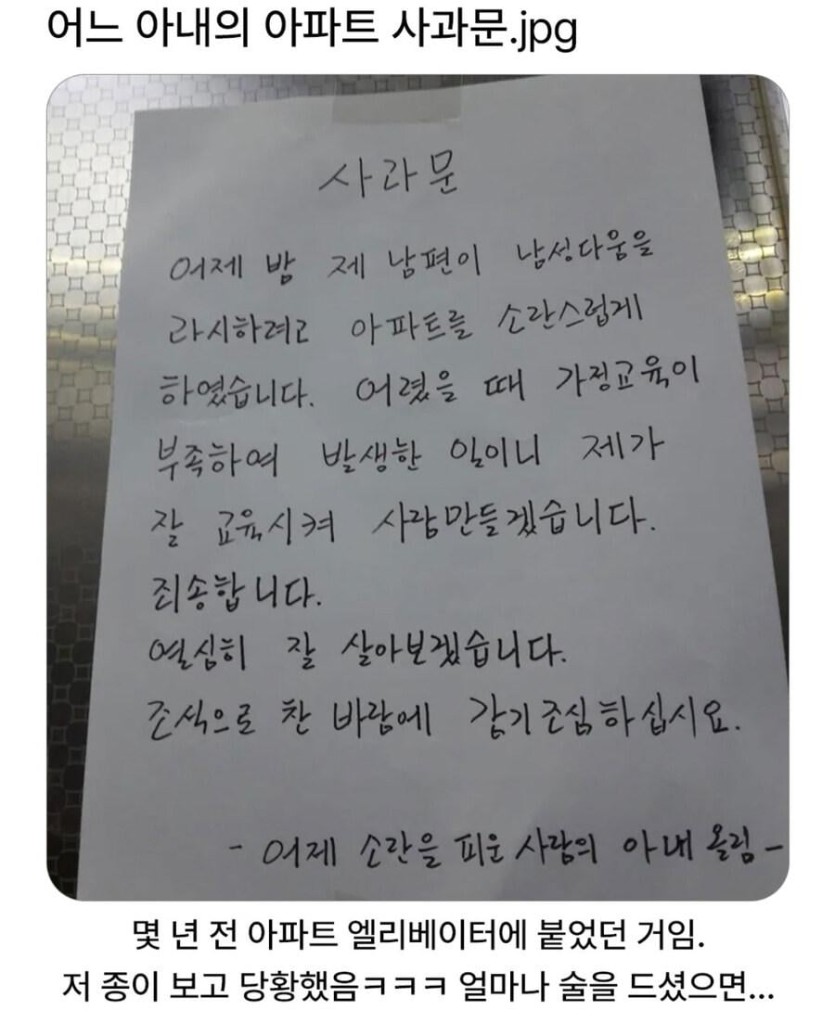 어느 아내의 아파트 사과문.jpg
사과문
어제 밤 제 남편이 남성다움을
과시하려고 아파트를 소란스럽게
하였습니다. 어렸을 때 가정교육이
부족하여 발생한 일이니 제가
잘 교육시켜 사람만들겠습니다.
죄송합니다.
열심히 잘 살아보겠습니다.
조석으로 찬 바람에 감기조심하십시요.
- 어제 소란을 피운 사람의 아내 올림-
몇 년 전 아파트 엘리베이터에 붙었던 거임.
저 종이 보고 당황했음ㅋㅋㅋ 얼마나 술을 드셨으면...